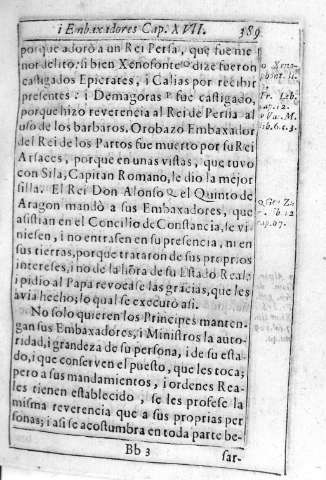 i Embaxadores Cap. XVII. 389
porque adorò a un Rei Persa, que fue me
nor delito: si bien Xenofonte o dize fueron
castigados Epicrates, i Calias por recibir
presentes: i Demagoras p fue castigado,
porque hizo reverencia al Rei de Persia al
uso de los barbaros. Orobazo Embaxador
del Rei de los Partos fue muerto por su Rei
Arsaces, porque en unas vistas, que tuvo
con Sila, Capitan Romano, le dio la mejor
silla. El Rei Don Alonso q el Quinto de
Aragon mandò a sus Embaxadores, que
asistian en el Concilio de Constancia, se vi
niesen, i no entrasen en su presencia, ni en
sus tierras, porque trataron de sus proprios
intereses, i no de la hõra de su Estado Real:
i pidio al Papa revocase las gracias, que les
avia hecho; lo qual se executò asi.
No solo quieren los Principes manten-
gan sus Embaxadores, i Ministros la auto-
ridad, i grandeza de su persona, i de su esta-
do, i que conserven el puesto, que les toca;
pero a sus mandamientos, i ordenes Rea-
les tienen establecido, se les profese la
misma reverencia que a sus proprias per
sonas; i asi se acostumbra en toda parte be-
Bb 3 sar-
o Xeno-
p Fr. Leb.
cap. 12.
Va. M.
lib. 6. c. 3.
q Gr. Zu
lib. 12
cap. 67.